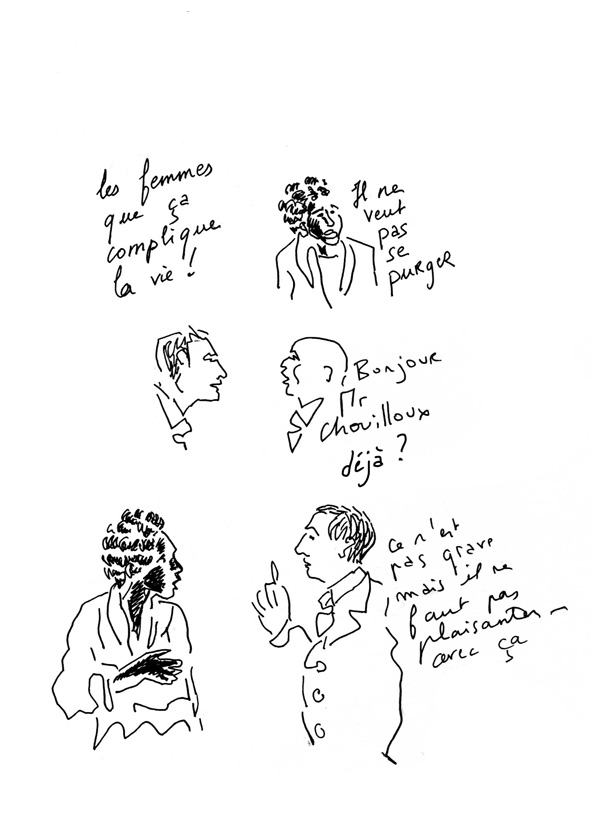 les femmes
que ça
complique
la vie !
Il ne
veut
pas
se
purger
Bonjour
Mr
Chouilloux
déjà ?
ce n'est
pas grave
mais il ne
faut pas
plaisanter
avec ça